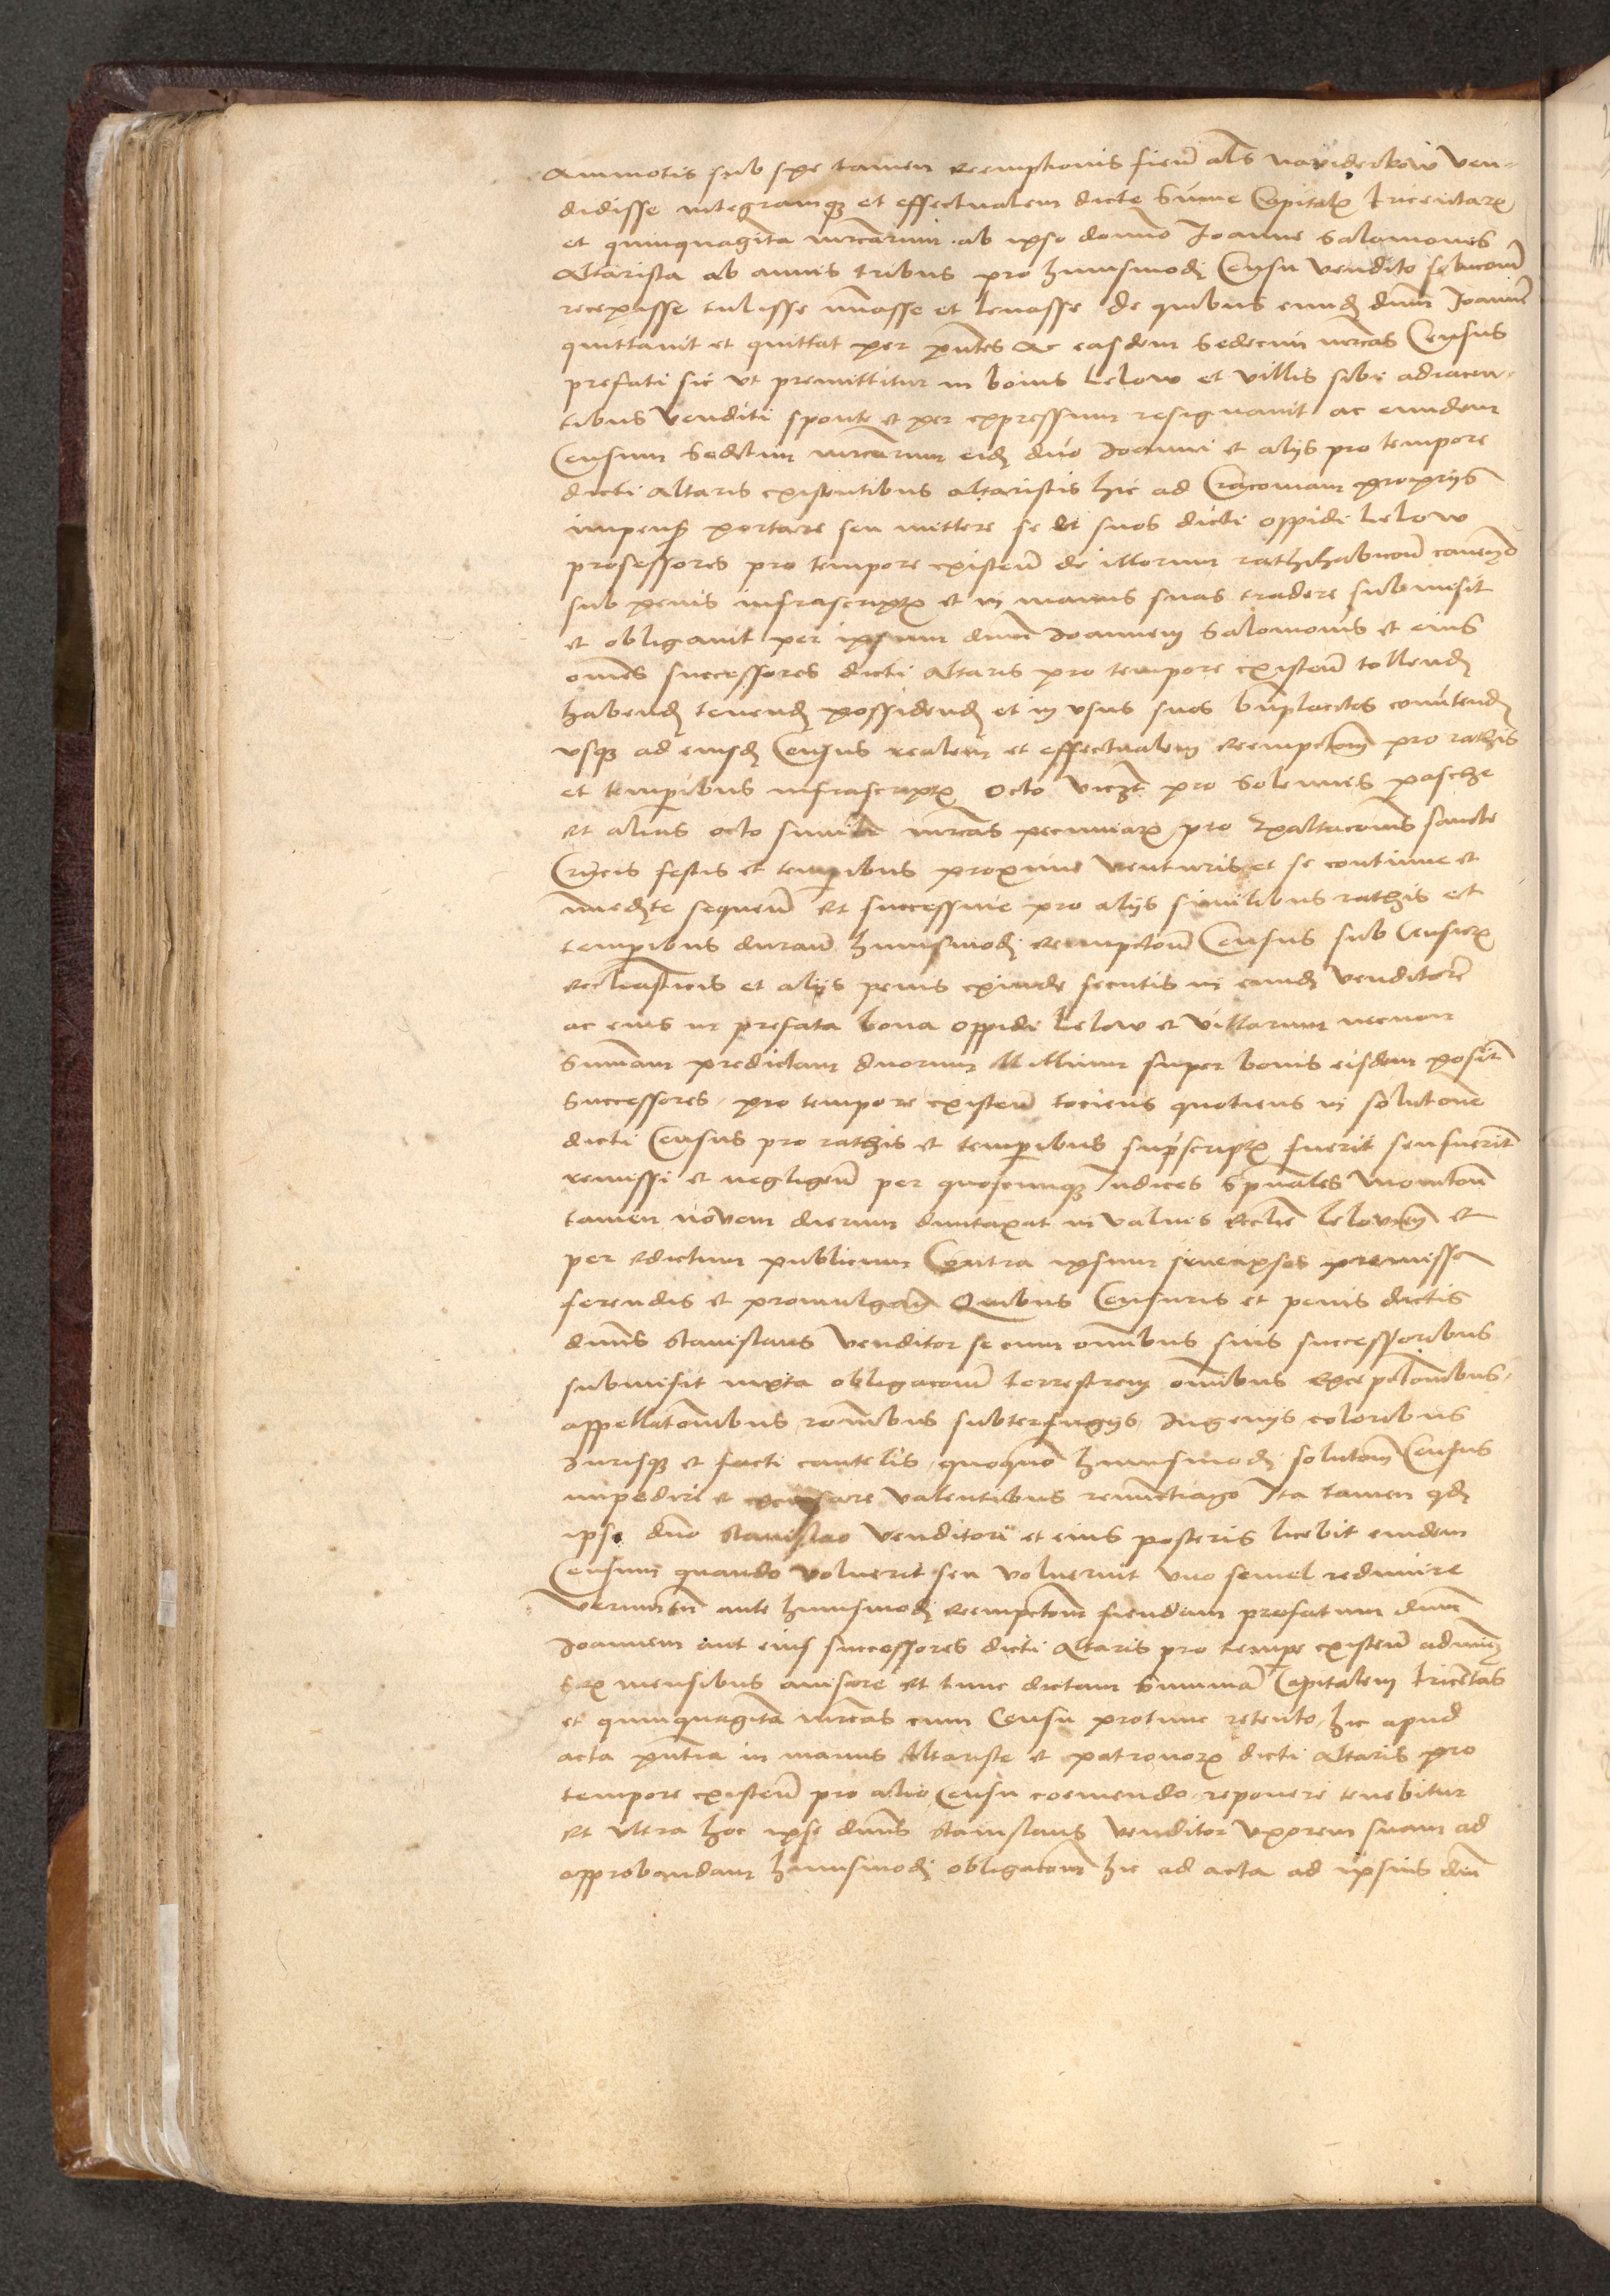 ammotis sub spe tamen reempltionis fieñ als naviderkow ven-
didisse integramqȝ et effectualem dicte Sum̃e Capitalꝭ tricentarꝝ
et quinquagĩta mr̃carum ab ipso domĩo Joanne Salomonis
Altarista ab annis tribus pro huiusmodi Censu vendito
recepisse tulisse et levasse de quibus eundȝ dñm Joannẽ
quittavit et quittat per pñtes Ac easdem Sedecim mrc̃as Census
prefati sic ut premittitur in bonis Lelow et villis sibi adiacen-
tibus venditi sponte et per expressum resignavit ac eundem
Censum Sedecim mrc̃arum eidȝ dño Joanni et alijs pro tempore
dicti Altaris existentibus altaristis hic ad Cracoviam proprijs
impenß portare seu mittere se et suos dicti oppidi Lelow
possessores pro tempore existeñ de illorum rathihabicõe caveñdo
sub penis infrascriptꝭ et in manus suas tradere submisit
et obligavit per ipsum dñm Joannem Salomonis et eius
om̃es successores dicti Altaris pro tempore existeñ tollendȝ
habendȝ tenendȝ possidendȝ et in usus suos bñplacitos convertendȝ
usqȝ ad eiusdȝ Census realem et effectualem reempcõem pro rathis
et temporibus infrascriptꝭ Octo viczt pro Solennis pasche
et alias octo simili mrc̃as pecuniarꝝ pro Exaltacionis sancte
Crucis festis et temporibus proxime venturis et se continue et
immedĩte sequeñ Et successive pro alijs similibus rathis et
temporibus durañ huiusmodi reempcõem Census sub Censurꝭ
ecclĩasticis et alijs penis exinde secutis in eundȝ venditorẽ
ac eius in prefata bona oppidi Lelow et villarum necnon
Sum̃am predictam duorum Millium super bonis eisdem positã
Successores pro tempore existeñ tociens quotiens in solutione
dicti Census pro rathis et temporibus suprascriptꝭ fuerit seu fuerint
remissi et negligeñ per quoscumqȝ Iudices Spũales monicõe
tamen novem dierum dumtaxat in valvis Ecclĩe Lelovieñ et
per edictum publicum Contra ipsum sive ipsos premissa
ferendis et promulgañ Quibus Censuris et penis dictis
dñs Stanislaus Venditor se cum om̃ibus suis successoribus
submisit iuxta obligacõem terrestrem om̃ibus excepcõibus
appellacõibus rõnibus subterfugijs Ingenijs coloribus
Jurisqȝ et facti cautelis quoq̃mo huiusmodi solucõem Census
impedire et valentibus Ita tamen qdȝ
ipsi dño Stanislao Venditori et eius posteris licebit eundem
Censum quando voluerit seu voluerint uno semel redimere
Verumtñ ante huiusmodi reempcõem fiendam prefatum dñm
Joannem aut eius successores dicti Altaris pro tempe existeñ ad
mensibus avisare et tunc dictam Summã Capitalem tricẽtas
et quinquagĩta mrc̃as cum Censu protunc retento hic apud
acta pñtia in manus Altariste et patronorꝝ dicti Altaris pro
tempore existeñ pro alio Censu coemendo reponere tenebitur
Et ultra hoc ipse dñs Stanislaus Venditor Uxorem suam ad
approbandam huiusmodi obligacõem hic ad acta ad ipsius dñi